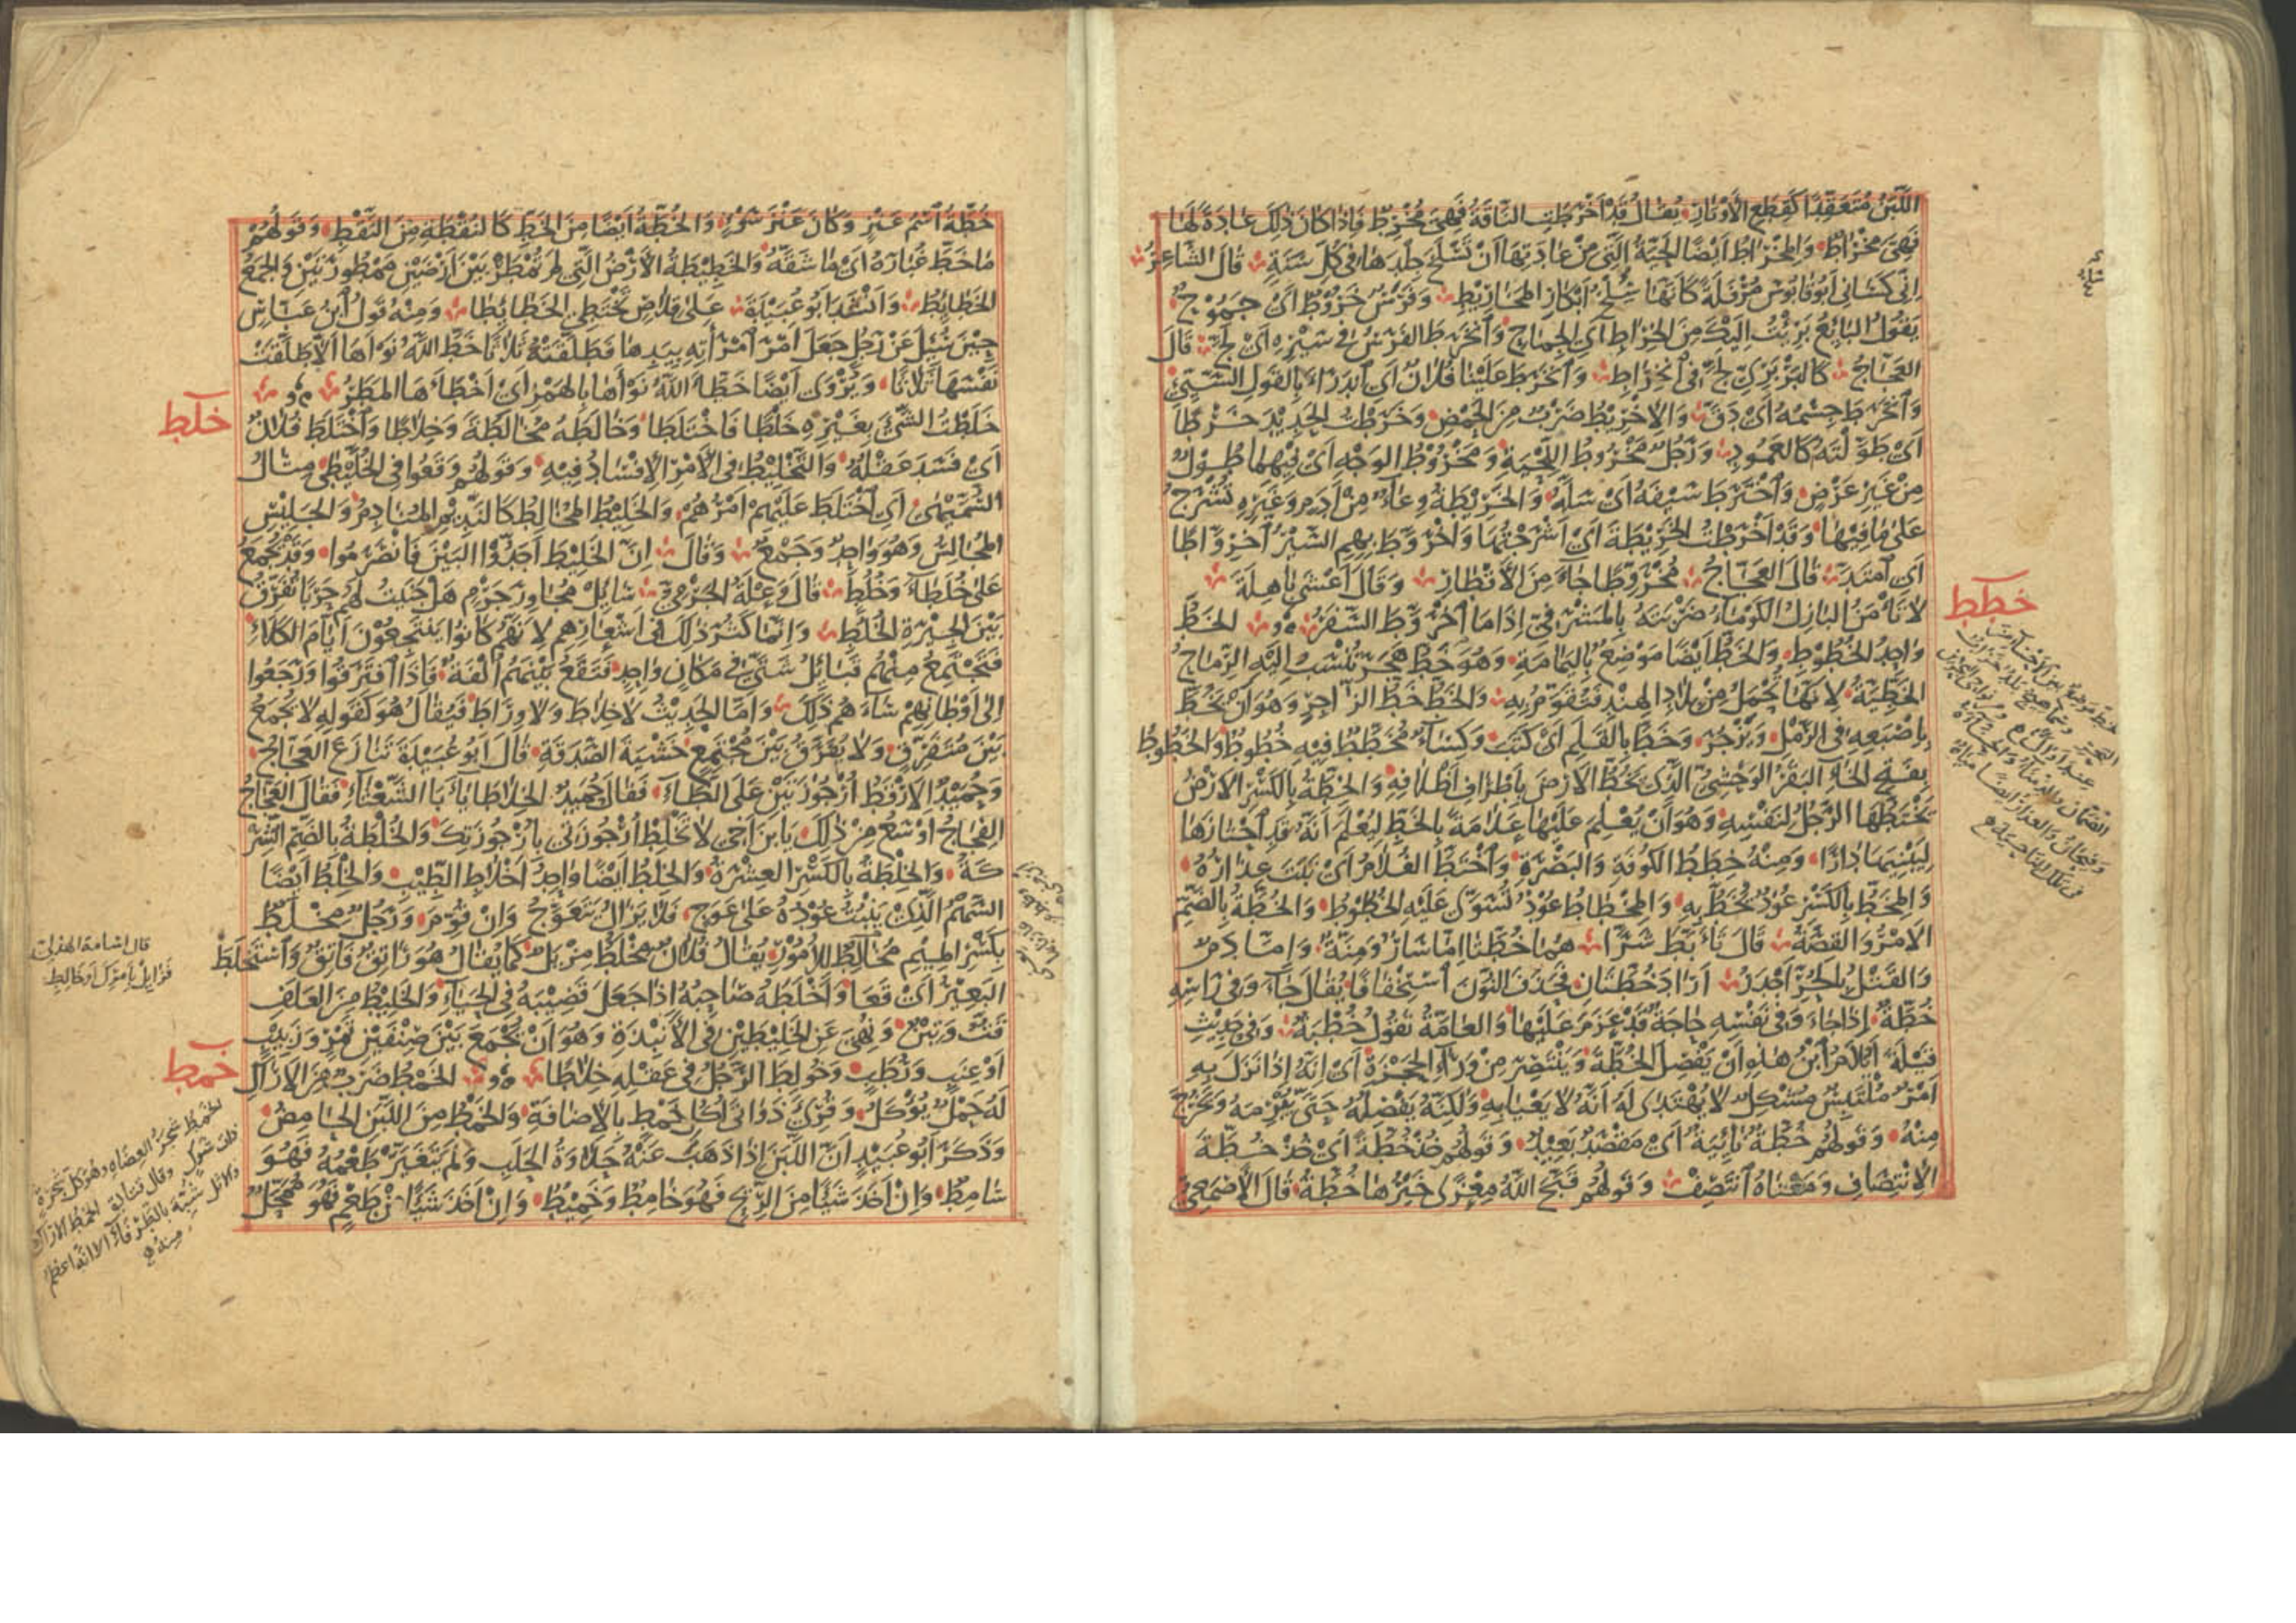 اللَّبَنُ مُتَعَقِّدًا كَقِطَعِ الأَوْتَارِ يُقَالُ قَدْ أَخْرَطَتِ النَّاقَةُ فَهِيَ مُخْرِطٌ فَإِذَا كَانَ ذٰلِكَ عَادَةً لَهَا
فَهِيَ مِخْرَاطٌ وَالمِخْرَاطُ أَيْضًا الحَيَّةُ الَّتِي مِنْ عَادَتِهَا أَنْ تَسْلَخَ جِلْدَهَا فِي كُلِّ سَنَةٍ قَالَ الشَّاعِرُ
إِنِّي كَسَانِي أَبُو قَابُوسَ مُرْفَلَةً كَأَنَّهَا سِلْخُ أَبْكَارِ المَخَارِيطِ وَفَرَسٌ خَرُوطٌ أَيْ جَمُوحٌ
يَقُولُ البَائِعُ بَرِئْتُ إِلَيْكَ مِنَ الخِرَاطِ أَيِ الجِمَاحِ وَانْخَرَطَ الفَرَسُ فِي سَيْرِهِ أَيْ لَجَّ قَالَ
العَجَّاجُ كَالبَرْبَرِيِّ لَجَّ فِي انْخِرَاطِ وَانْخَرَطَ عَلَيْنَا فُلَانٌ أَيِ انْدَرَأَ بِالقَوْلِ السَّيِّئِ
وَانْخَرَطَ جِسْمُهُ أَيْ دَقَّ وَالإِخْرِيطُ ضَرْبٌ مِنَ الحَمْضِ وَخَرَطْتُ الحَدِيدَ خَرْطًا
أَيْ طَوَّلْتُهُ كَالعَمُودِ وَرَجُلٌ مَخْرُوطُ اللِّحْيَةِ وَمَخْرُوطُ الوَجْهِ أَيْ فِيهِمَا طُولٌ
مِنْ غَيْرِ عَرْضٍ وَاخْتَرَطَ سَيْفَهُ أَيْ سَلَّهُ وَالخَرِيطَةُ وِعَاءٌ مِنْ أَدَمٍ وَغَيْرِهِ تُشْرَجُ
عَلَى مَا فِيهَا وَقَدْ أَخْرَطْتُ الخَرِيطَةَ أَيْ أَشْرَجْتُهَا وَاخْرَوَّطَ بِهِمِ السَّيْرُ اخْرِوَّاطًا
أَيِ امْتَدَّ قَالَ العَجَّاجُ مُخْرَوِّطًا جَاءَ مِنَ الأَقْطَارِ وَقَالَ أَعْشَى بَاهِلَةَ
لَا تَأْمَنُ البَازِلُ الكَوْمَاءُ ضَرْبَتَهُ بِالمَشْرَفِيِّ إِذَا مَا اخْرَوَّطَ السَّفَرُ الخَطُّ
خطط
وَاحِدُ الخُطُوطِ وَالخَطُّ أَيْضًا مَوْضِعٌ بِاليَمَامَةِ وَهُوَ خَطُّ هَجَرَ تُنْسَبُ إِلَيْهِ الرِّمَاحُ
الخَطِّيَّةُ لِأَنَّهَا تُحْمَلُ مِنْ بِلَادِ الهِنْدِ فَتُقَوَّمُ بِهِ وَالخَطُّ خَطُّ الزَّاجِرِ وَهُوَ أَنْ يَخُطَّ
بِإِصْبَعِهِ فِي الرَّمْلِ وَيَزْجُرَ وَخَطَّ بِالقَلَمِ أَيْ كَتَبَ وَكِسَاءٌ مُخَطَّطٌ فِيهِ خُطُوطٌ وَالخَطُوطُ
بِفَتْحِ الخَاءِ البَقَرُ الوَحْشِيُّ الَّذِي يَخُطُّ الأَرْضَ بِأَطْرَافِ أَظْلَافِهِ وَالخِطَّةُ بِالكَسْرِ الأَرْضُ
يَخْتَطُّهَا الرَّجُلُ لِنَفْسِهِ وَهُوَ أَنْ يُعْلِمَ عَلَيْهَا عَلَامَةً بِالخَطِّ لِيُعْلَمَ أَنَّهُ قَدِ اخْتَارَهَا
لِيَبْنِيَهَا دَارًا وَمِنْهُ خِطَطُ الكُوفَةِ وَالبَصْرَةِ وَاخْتَطَّ الغُلَامُ أَيْ نَبَتَ عِذَارُهُ
وَالمِخَطُّ بِالكَسْرِ عُودٌ يُخَطُّ بِهِ وَالمِخْطَاطُ عُودٌ تُسَوَّى عَلَيْهِ الخُطُوطُ وَالخُطَّةُ بِالضَّمِّ
الأَمْرُ وَالقِصَّةُ قَالَ تَأَبَّطَ شَرًّا هُمَا خُطَّتَا إِمَّا إِسَارٌ وَمِنَّةٌ وَإِمَّا دَمٌ
وَالقَتْلُ بِالحُرِّ أَجْدَرُ أَرَادَ خُطَّتَانِ فَحَذَفَ النُّونَ اسْتِخْفَافًا يُقَالُ جَاءَ وَفِي رَأْسِهِ
خُطَّةٌ إِذَا جَاءَ وَفِي نَفْسِهِ حَاجَةٌ قَدْ عَزَمَ عَلَيْهَا وَالعَامَّةُ تَقُولُ خُطْبَةٌ وَفِي حَدِيثِ
قَيْلَةَ أَيُلَامُ ابْنُ هٰذِهِ أَنْ يَفْصِلَ الخُطَّةَ وَيَنْتَصِرَ مِنْ وَرَاءِ الحَجَزَةِ أَيْ إِنَّهُ إِذَا نَزَلَ بِهِ
أَمْرٌ مُلْتَبِسٌ مُشْكِلٌ لَا يُهْتَدَى لَهُ أَنَّهُ لَا يَعْيَا بِهِ وَلٰكِنَّهُ يَفْصِلُهُ حَتَّى يُبْرِمَهُ وَيَخْرُجَ
مِنْهُ وَقَوْلُهُمْ خُطَّةٌ نَائِيَةٌ أَيْ مَقْصَدٌ بَعِيدٌ وَقَوْلُهُمْ خُذْ خُطَّةً أَيْ خُذْ خُطَّةَ
الاِنْتِصَافِ وَمَعْنَاهُ انْتَصِفْ وَقَوْلُهُمْ قَبَّحَ اللهُ مِعْزَى خَيْرُهَا خُطَّةُ قَالَ الأَصْمَعِيُّ
خُطَّةُ اسْمُ عَنْزٍ وَكَانَ عَنْزَ سَوْءٍ وَالخُطَّةُ أَيْضًا مِنَ الخَطِّ كَالنُّقْطَةِ مِنَ النَّقْطِ وَقَوْلُهُمْ
مَا خَطَّ غُبَارَهُ أَيْ مَا شَقَّهُ وَالخَطِيطَةُ الأَرْضُ الَّتِي لَمْ تُمْطَرْ بَيْنَ أَرْضَيْنِ مَمْطُورَتَيْنِ وَالجَمْعُ
الخَطَائِطُ وَأَنْشَدَ أَبُو عُبَيْدَةَ عَلَى قِلَاصٍ تَخْتَطِي الخَطَائِطَا وَمِنْهُ قَوْلُ ابْنِ عَبَّاسٍ
حِينَ سُئِلَ عَنْ رَجُلٍ جَعَلَ أَمْرَ امْرَأَتِهِ بِيَدِهَا فَطَلَّقَتْهُ ثَلَاثًا خَطَّ اللهُ نَوْءَهَا أَلَّا طَلَّقَتْ
نَفْسَهَا ثَلَاثًا وَيُرْوَى أَيْضًا خَطَّأَ اللهُ نَوْأَهَا بِالهَمْزِ أَيْ أَخْطَأَهَا المَطَرُ
خلط
خَلَطْتُ الشَّيْءَ بِغَيْرِهِ خَلْطًا فَاخْتَلَطَا وَخَالَطَهُ مُخَالَطَةً وَخِلَاطًا وَاخْتَلَطَ فُلَانٌ
أَيْ فَسَدَ عَقْلُهُ وَالتَّخْلِيطُ فِي الأَمْرِ الإِفْسَادُ فِيهِ وَقَوْلُهُمْ وَقَعُوا فِي الخُلَّيْطَى مِثَالُ
السُّمَّيْهَى أَيِ اخْتَلَطَ عَلَيْهِمْ أَمْرُهُمْ وَالخَلِيطُ المُخَالِطُ كَالنَّدِيمِ المُنَادِمِ وَالجَلِيسِ
المُجَالِسِ وَهُوَ وَاحِدٌ وَجَمْعٌ وَقَالَ إِنَّ الخَلِيطَ أَجَدُّوا البَيْنَ فَانْصَرَمُوا وَقَدْ يُجْمَعُ
عَلَى خُلَطَاءَ وَخُلُطٍ قَالَ وَعْلَةُ الجَرْمِيُّ سَائِلْ مُجَاوِرَ جَرْمٍ هَلْ جَنَيْتُ لَهُمْ حَرْبًا تُفَرِّقُ
بَيْنَ الجِيرَةِ الخُلُطِ وَإِنَّمَا كَثُرَ ذٰلِكَ فِي أَشْعَارِهِمْ لِأَنَّهُمْ كَانُوا يَنْتَجِعُونَ أَيَّامَ الكَلَاءِ
فَتَجْتَمِعُ مِنْهُمْ قَبَائِلُ شَتَّى فِي مَكَانٍ وَاحِدٍ فَتَقَعُ بَيْنَهُمْ أُلْفَةٌ فَإِذَا افْتَرَقُوا وَرَجَعُوا
إِلَى أَوْطَانِهِمْ سَاءَهُمْ ذٰلِكَ وَأَمَّا الحَدِيثُ لَا خِلَاطَ وَلَا وِرَاطَ فَيُقَالُ هُوَ كَقَوْلِهِ لَا يُجْمَعُ
بَيْنَ مُتَفَرِّقٍ وَلَا يُفَرَّقُ بَيْنَ مُجْتَمِعٍ خَشْيَةَ الصَّدَقَةِ قَالَ أَبُو عُبَيْدَةَ تَنَازَعَ العَجَّاجُ
وَحُمَيْدٌ الأَرْقَطُ أُرْجُوزَتَيْنِ عَلَى الطَّاءِ فَقَالَ حُمَيْدٌ الخِلَاطَ يَا أَبَا الشَّعْثَاءِ فَقَالَ العَجَّاجُ
الفِجَاجُ أَوْسَعُ مِنْ ذٰلِكَ يَا بْنَ أَخِي لَا تَخْلِطْ أُرْجُوزَتِي بِأُرْجُوزَتِكَ وَالخُلْطَةُ بِالضَّمِّ الشِّرْ
كَةُ وَالخِلْطَةُ بِالكَسْرِ العِشْرَةُ وَالخِلْطُ أَيْضًا وَاحِدُ أَخْلَاطِ الطِّيبِ وَالخِلْطُ أَيْضًا
السَّهْمُ الَّذِي يَنْبُتُ عُودُهُ عَلَى عِوَجٍ فَلَا يَزَالُ يَتَعَوَّجُ وَإِنْ قُوِّمَ وَرَجُلٌ مِخْلَطٌ
بِكَسْرِ المِيمِ مُخَالِطٌ لِلأُمُورِ يُقَالُ فُلَانٌ مِخْلَطٌ مِزْيَلٌ كَمَا يُقَالُ هُوَ رَاتِقٌ فَاتِقٌ وَاسْتَخْلَطَ
البَعِيرُ أَيْ قَعَا وَأَخْلَطَهُ صَاحِبُهُ إِذَا جَعَلَ قَضِيبَهُ فِي الحَيَاءِ وَالخَلِيطُ مِنَ العَلَفِ
قَتٌّ وَتِبْنٌ وَنُهِيَ عَنِ الخَلِيطَيْنِ فِي الأَنْبِذَةِ وَهُوَ أَنْ يُجْمَعَ بَيْنَ صِنْفَيْنِ تَمْرٍ وَزَبِيبٍ
أَوْ عِنَبٍ وَرُطَبٍ وَخُولِطَ الرَّجُلُ فِي عَقْلِهِ خِلَاطًا الخَمْطُ ضَرْبٌ مِنَ الأَرَاكِ
خمط
لَهُ حَمْلٌ يُؤْكَلُ وَقُرِئَ ذَوَاتَى أُكُلِ خَمْطٍ بِالإِضَافَةِ وَالخَمْطُ مِنَ اللَّبَنِ الحَامِضُ
وَذَكَرَ أَبُو عُبَيْدٍ أَنَّ اللَّبَنَ إِذَا ذَهَبَ عَنْهُ حَلَاوَةُ الحَلَبِ وَلَمْ يَتَغَيَّرْ طَعْمُهُ فَهُوَ
سَامِطٌ وَإِنْ أَخَذَ شَيْئًا مِنَ الرِّيحِ فَهُوَ خَامِطٌ وَخَمِيطٌ وَإِنْ أَخَذَ شَيْئًا مِنْ طَعْمٍ فَهُوَ مُمَحَّلٌ
قال اسامة الهذلي
الخمط شجر العضاه وهو كل شجرة